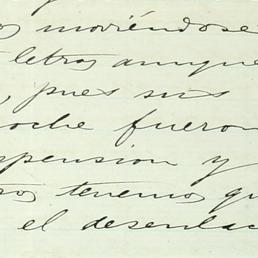 s moviéndose
letras aunque
, pues sus
oche fueron
spension y
ros tenemos qu
el desenlac